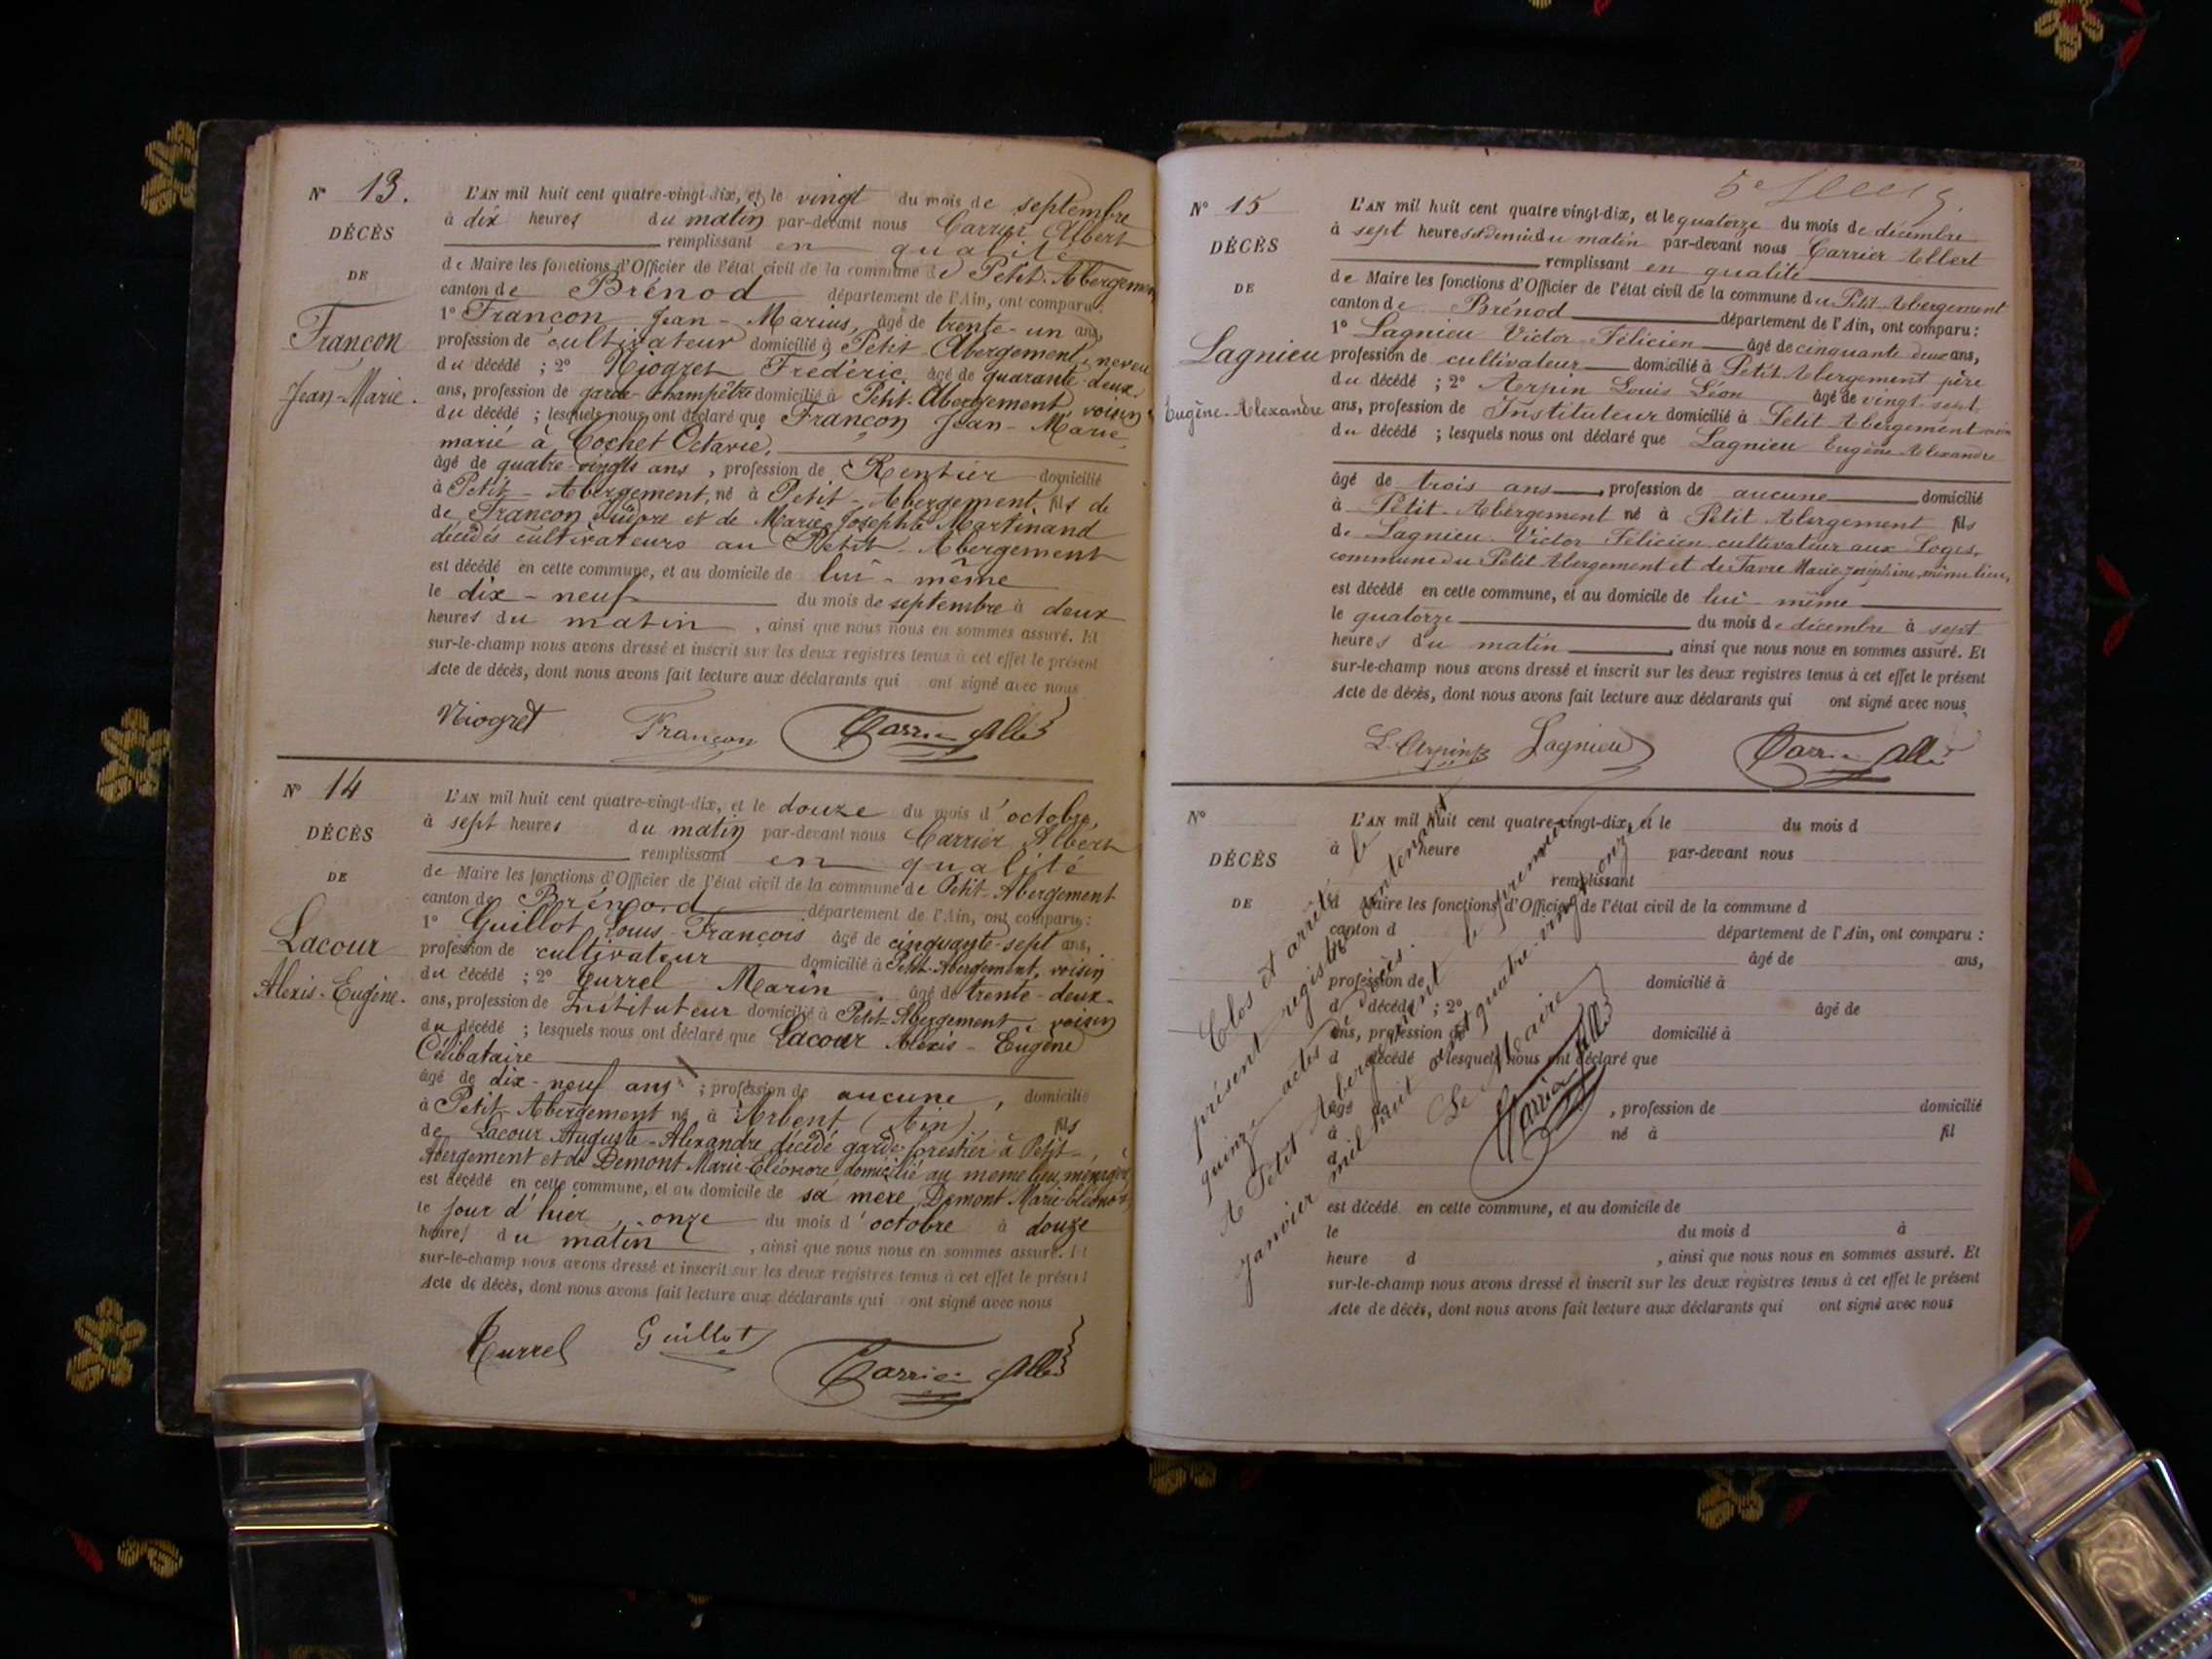 N° 13.
DÉCÈS
DE
Françon
Jean-Marie.
L'AN mil huit cent quatre-vingt-dix, et le vingt du mois de septembre
à dix heures du matin par-devant nous Carrier Albert
remplissant en qualité
de Maire les fonctions d'Officier de l'état civil de la commune de Petit-Abergement
canton de Brénod département de l'Ain, ont comparu:
1° Françon Jean-Marius, âgé de trente-un ans,
profession de cultivateur domicilié à Petit-Abergement, neveu
du décédé ; 2° Niogret Frédéric, âgé de quarante-deux
ans, profession de garde-champêtre domicilié à Petit-Abergement, voisin
du décédé ; lesquels nous ont déclaré que Françon Jean-Marie
marié à Cochet Octavie,
âgé de quatre-vingts ans, profession de Rentier domicilié
à Petit-Abergement, né à Petit-Abergement, fils de
de Françon Isidore et de Marie-Josephte Martinand
décédés cultivateurs au Petit-Abergement
est décédé en cette commune, et au domicile de lui-même
le dix-neuf du mois de septembre à deux
heures du matin, ainsi que nous nous en sommes assuré. Et
sur-le-champ nous avons dressé et inscrit sur les deux registres tenus à cet effet le présent
Acte de décès, dont nous avons fait lecture aux déclarants qui ont signé avec nous
Niogret Françon Carrier Albt
N° 14
DÉCÈS
DE
Lacour
Alexis-Eugène.
L'AN mil huit cent quatre-vingt-dix, et le douze du mois d'octobre,
à sept heures du matin par-devant nous Carrier Albert
remplissant en qualité
de Maire les fonctions d'Officier de l'état civil de la commune de Petit-Abergement
canton de Brénod département de l'Ain, ont comparu:
1° Guillot Louis-François âgé de cinquante-sept ans,
profession de cultivateur domicilié à Petit-Abergement, voisin
du décédé ; 2° Turrel Marin âgé de trente-deux
ans, profession de Instituteur domicilié à Petit-Abergement, voisin
du décédé ; lesquels nous ont déclaré que Lacour Alexis-Eugène
Célibataire
âgé de dix-neuf ans ; profession de aucune, domicilié
à Petit-Abergement né à Arbent (Ain) fils
de Lacour Auguste-Alexandre décédé garde-forestier à Petit-
Abergement et de Demont Marie-Eléonore domicilié au même lieu, ménagère
est décédé en cette commune, et au domicile de sa mère, Demont Marie-Eléonore
le jour d'hier, onze du mois d'octobre à douze
heures du matin, ainsi que nous nous en sommes assuré. Et
sur-le-champ nous avons dressé et inscrit sur les deux registres tenus à cet effet le présent
Acte de décès, dont nous avons fait lecture aux déclarants qui ont signé avec nous
Turrel Guillot Carrier Albt
N° 15
DÉCÈS
DE
Lagnieu
Eugène-Alexandre
L'AN mil huit cent quatre vingt-dix, et le quatorze du mois de décembre
à sept heures et demie du matin par-devant nous Carrier Albert
remplissant en qualité
de Maire les fonctions d'Officier de l'état civil de la commune du Petit-Abergement
canton de Brénod département de l'Ain, ont comparu:
1° Lagnieu Victor-Félicien âgé de cinquante deux ans,
profession de cultivateur domicilié à Petit Abergement père
du décédé ; 2° Arpin Louis Léon âgé de vingt-sept
ans, profession de Instituteur domicilié à Petit Abergement voisin
du décédé ; lesquels nous ont déclaré que Lagnieu Eugène Alexandre
âgé de trois ans, profession de aucune domicilié
à Petit-Abergement né à Petit Abergement fils
de Lagnieu Victor Félicien cultivateur aux Loges,
commune du Petit Abergement et de Favre Marie Joséphine, même lieu,
est décédé en cette commune, et au domicile de lui-même
le quatorze du mois de décembre à sept
heures du matin, ainsi que nous nous en sommes assuré. Et
sur-le-champ nous avons dressé et inscrit sur les deux registres tenus à cet effet le présent
Acte de décès, dont nous avons fait lecture aux déclarants qui ont signé avec nous
L. Arpin Lagnieu Carrier Albt
N°
DÉCÈS
DE
L'AN mil huit cent quatre-vingt-dix, et le du mois d
à heure par-devant nous
remplissant
d Maire les fonctions d'Officier de l'état civil de la commune d
canton d département de l'Ain, ont comparu :
âgé de ans,
profession de domicilié à
d décédé ; 2° âgé de
ans, profession de domicilié à
d décédé lesquels nous ont déclaré que
âgé de , profession de domicilié
à né à fil
d
est décédé en cette commune, et au domicile de
le du mois d à
heure d , ainsi que nous nous en sommes assuré. Et
sur-le-champ nous avons dressé et inscrit sur les deux registres tenus à cet effet le présent
Acte de décès, dont nous avons fait lecture aux déclarants qui ont signé avec nous
Clos et arrêté le
présent registre contenant
quinze actes de décès.
A Petit Abergement le premier
janvier mil huit cent quatre-vingt onze
Le Maire
Carrier Albt